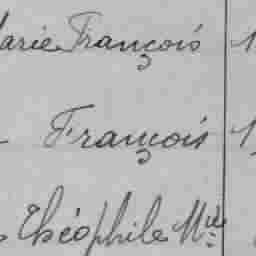 Marie François 1
François 1
Théophile Mle